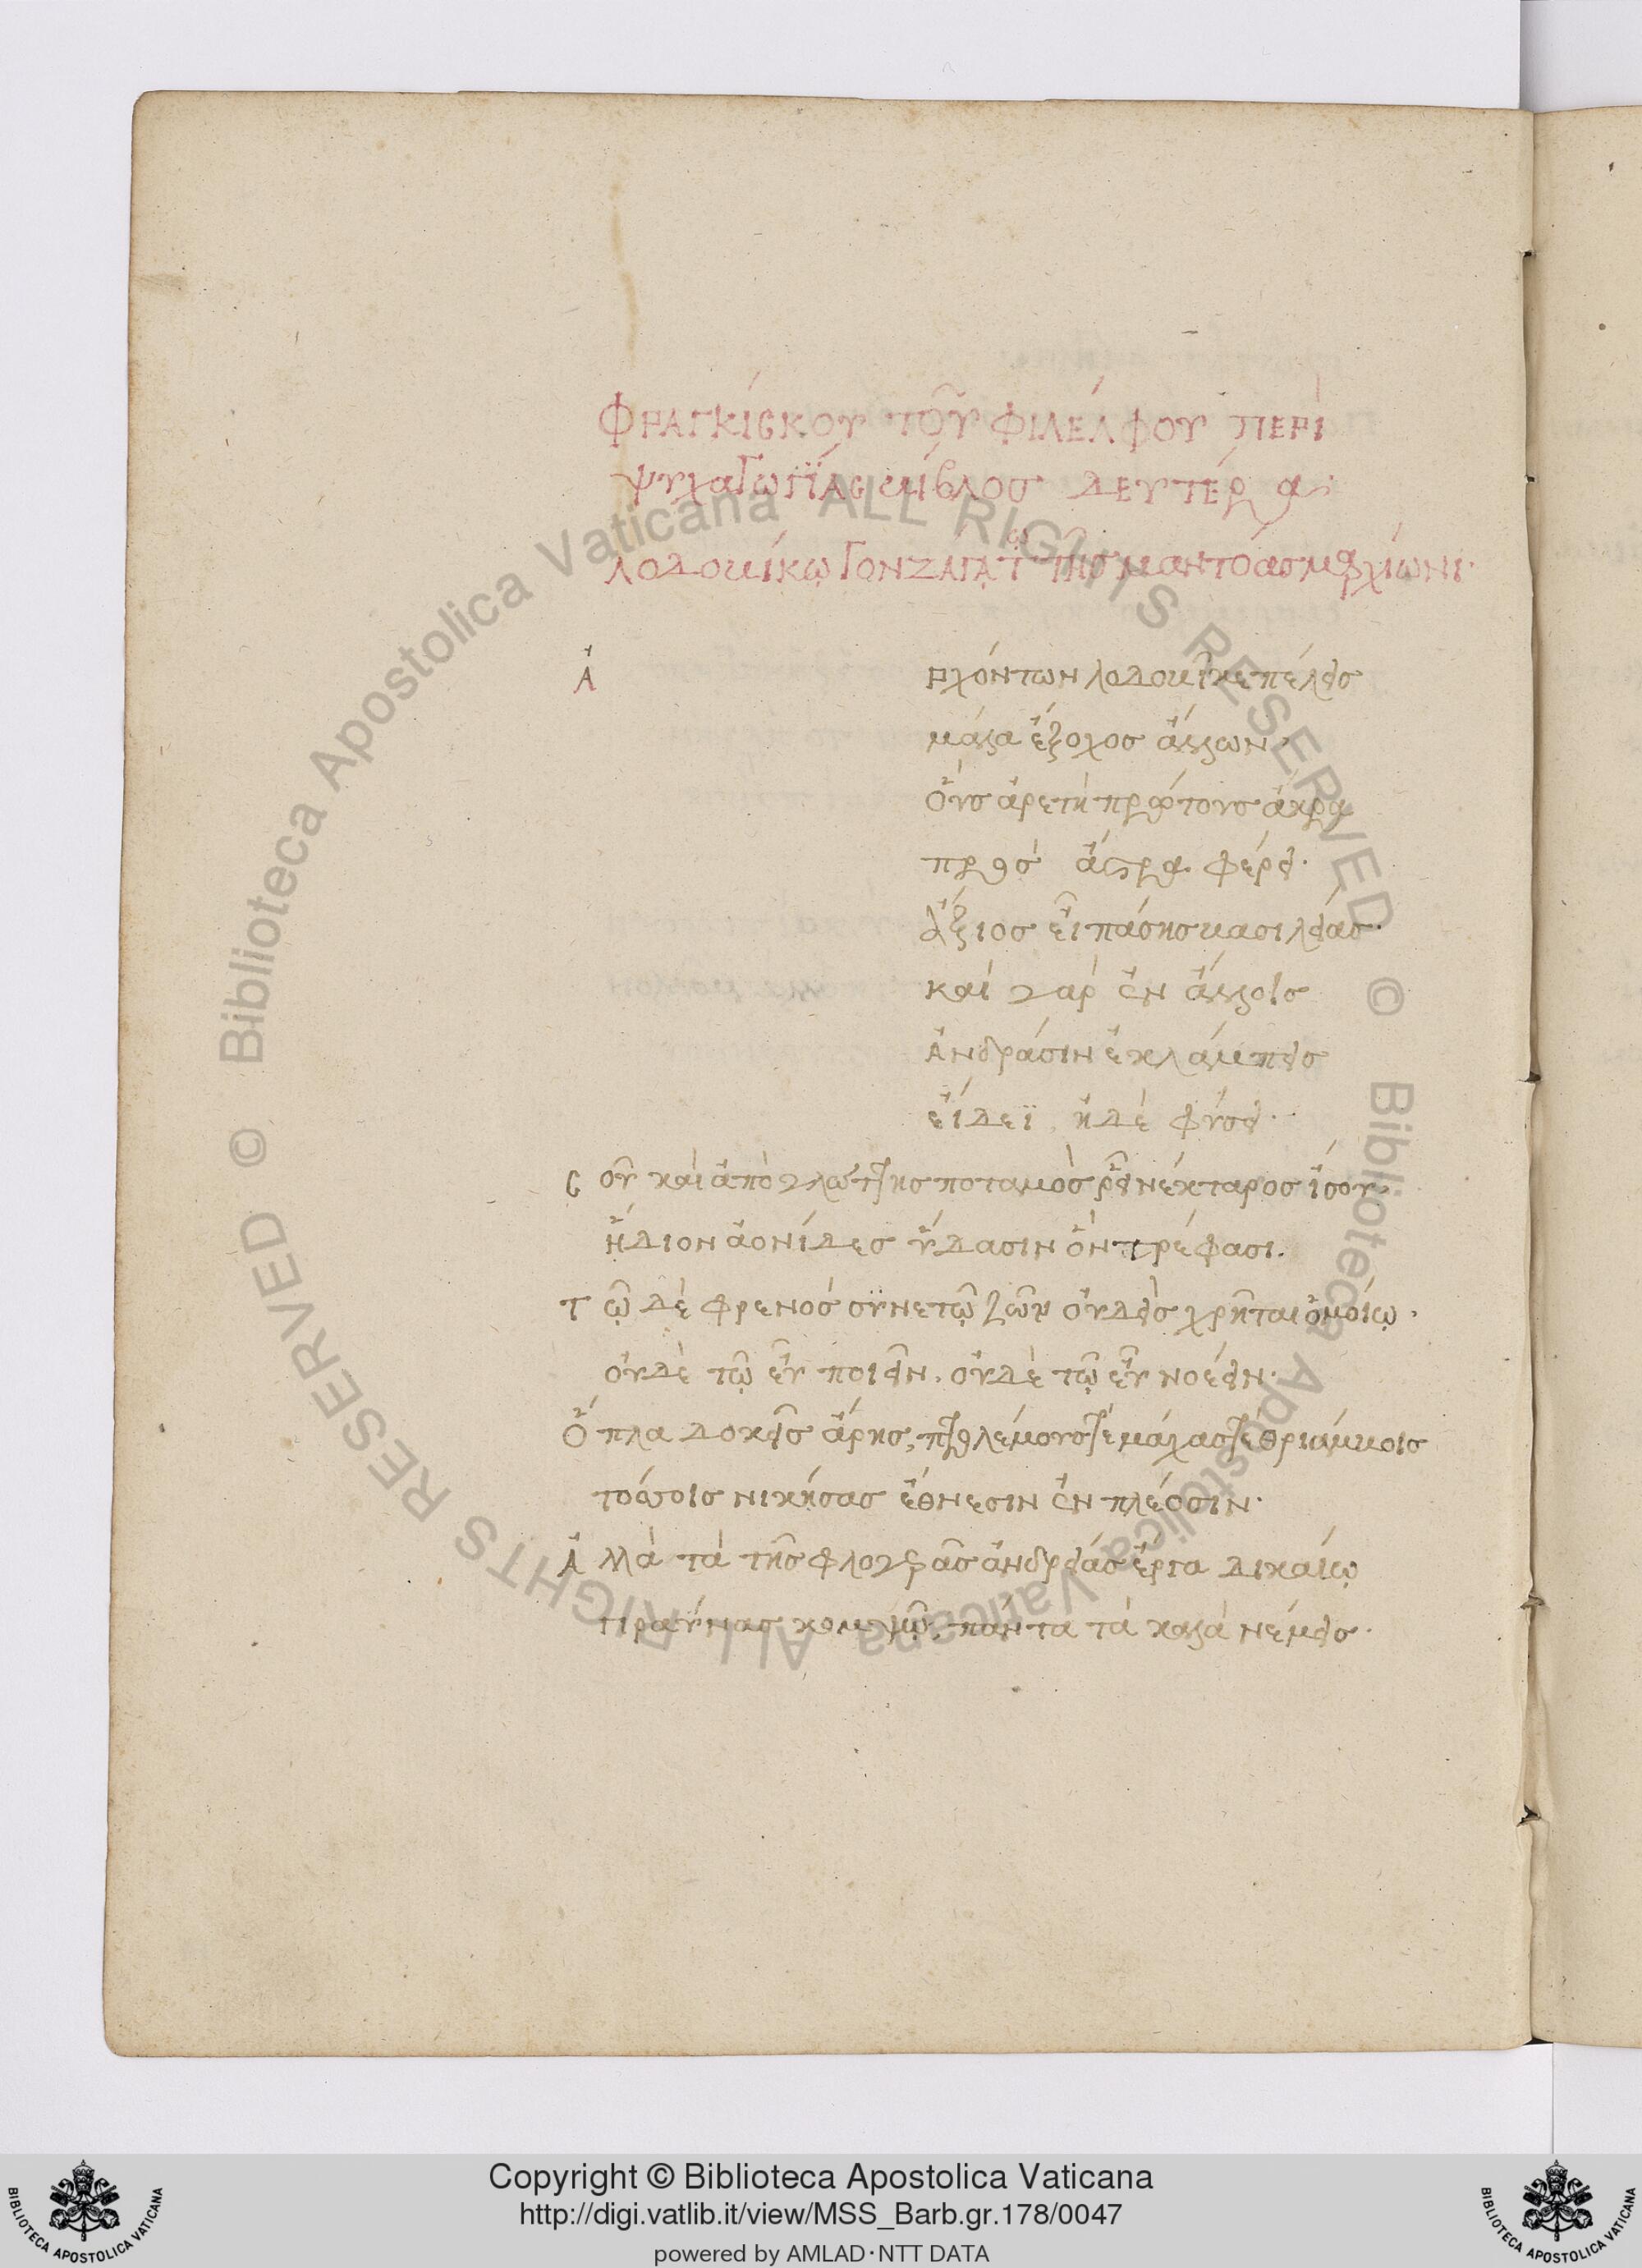 ΦΡΑΓΚΊΣΚΟΥ ΤΟῦ ΦΙΛΈΛΦΟΥ ΠΕΡῚ
ψυχαΓωΓΪΆς βίβλος ΔΕΥΤΈρα·
ΛΟΔΟβίΚῳ ΓΟΝΖΆΓᾳ Τῶ Τῆς μαντόας μαρχίωνι·
Ἀ ρχόντων λοδοβῖκε πέλεις
μάλα ἔξοχος ἄλλων·
Οὓς ἀρετὴ πρώτους ἄκρα
πρὸς ἄστρα φέρει·
Ἄξιος εἶ πάσης βασιλείας·
καὶ γὰρ ἐν ἄλλοις
Ἀνδράσιν ἐκλάμπεις
εἴδεϊ ἠδὲ φύσει·
Σ οῦ καὶ ἀπὸ γλώττης ποταμὸς ῥεῖ νέκταρος ἴσου,
ἥδιον ἀονίδες ὕδασιν ὃν τρέφασι.
Τ ῶ δὲ φρενὸς συνετῶ ζῶν οὐδεὶς χρῆται ὁμοίῳ·
οὐδὲ τῷ εὖ ποιεῖν. οὐδὲ τῷ εὖ νοέειν·
Ὅ πλα δοκεῖς ἄρης, πτολέμους τὲ μάχας τὲ θριάμβοις
τόσσοις νικήσας ἔθνεσιν ἐν πλέοσιν·
Ἀ λλὰ τὰ τῆς φλογερᾶς ἀνδρείας ἔργα δικαίῳ
πραΰνας κομψῷ, πάντα τὰ καλὰ νέμεις·
Copyright © Biblioteca Apostolica Vaticana
http://digi.vatlib.it/view/MSS_Barb.gr.178/0047
powered by AMLAD·NTT DATA
BIBLIOTECA APOSTOLICA VATICANA
BIBLIOTECA APOSTOLICA VATICANA
© Biblioteca Apostolica Vaticana ALL RIGHTS RESERVED
© Biblioteca Apostolica Vaticana ALL RIGHTS RESERVED